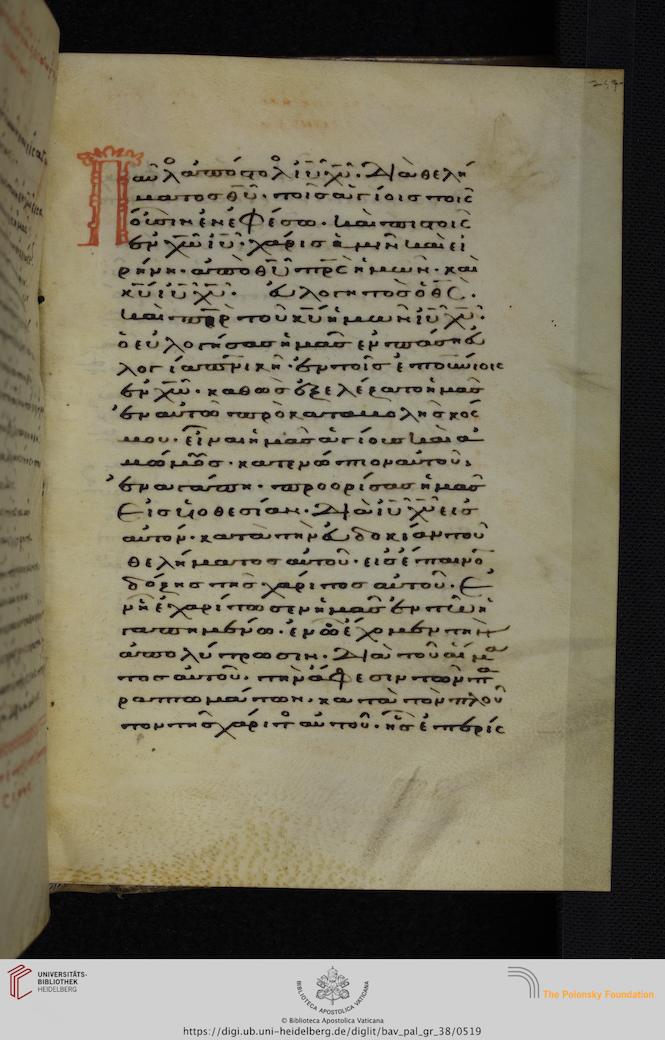 257
Παῦλος ἀπόστολος ἰ̅υ̅ χ̅υ̅. διὰ θελή
ματος θ̅υ̅. τοῖς ἁγίοις τοῖς
οὖσιν ἐν ἐφέσω. καὶ πιστοῖς
ἐν χ̅ω̅ ἰ̅υ̅. χάρις ὑμῖν καὶ εἰ
ρήνη. ἀπὸ θ̅υ̅ π̅ρ̅ς ἡμῶν. καὶ
κ̅υ̅ ἰ̅υ̅ χ̅υ̅. εὐλογητὸς ὁ θ̅ς̅.
καὶ π̅η̅ρ τοῦ κ̅υ̅ ἡμῶν ἰ̅υ̅ χ̅υ̅.
ὁ εὐλογήσας ἡμᾶς ἐν πάση εὐ
λογία π̅ν̅ικῆ. ἐν τοῖς ἐπουνίοις
ἐν χ̅ω̅. καθὼς ἐξελέξατο ἡμᾶς
ἐν αὐτῶ πρὸ καταβολῆς κόσ
μου. εἶναι ἡμᾶς ἁγίους καὶ ἀ
μώμους. κατενώπιον αὐτοῦ.
ἐν ἀγάπη. προορίσας ἡμᾶς
εἰς υἱοθεσίαν. διὰ ἰ̅υ̅ χ̅υ̅ εἰς
αὐτόν. κατὰ τὴν εὐδοκίαν τοῦ
θελήματος αὐτοῦ. εἰς ἔπαινον
δόξης τῆς χάριτος αὐτοῦ. ἐ
ν ἧ ἐχαρίτωσεν ἡμᾶς ἐν τῶ ἠ
γαπημένω. ἐν ὧ ἔχομεν τὴν
ἀπολύτρωσιν. διὰ τοῦ αἵμα
τος αὐτοῦ. τὴν ἄφεσιν τῶν π
ραπτωμάτων. κατὰ τὸν πλοῦ
τον τῆς χάριτος αὐτοῦ. ἧς ἐπερίς
UNIVERSITÄTS-
BIBLIOTHEK
HEIDELBERG
BIBLIOTECA APOSTOLICA VATICANA
The Polonsky Foundation
© Biblioteca Apostolica Vaticana
https://digi.ub.uni-heidelberg.de/diglit/bav_pal_gr_38/0519